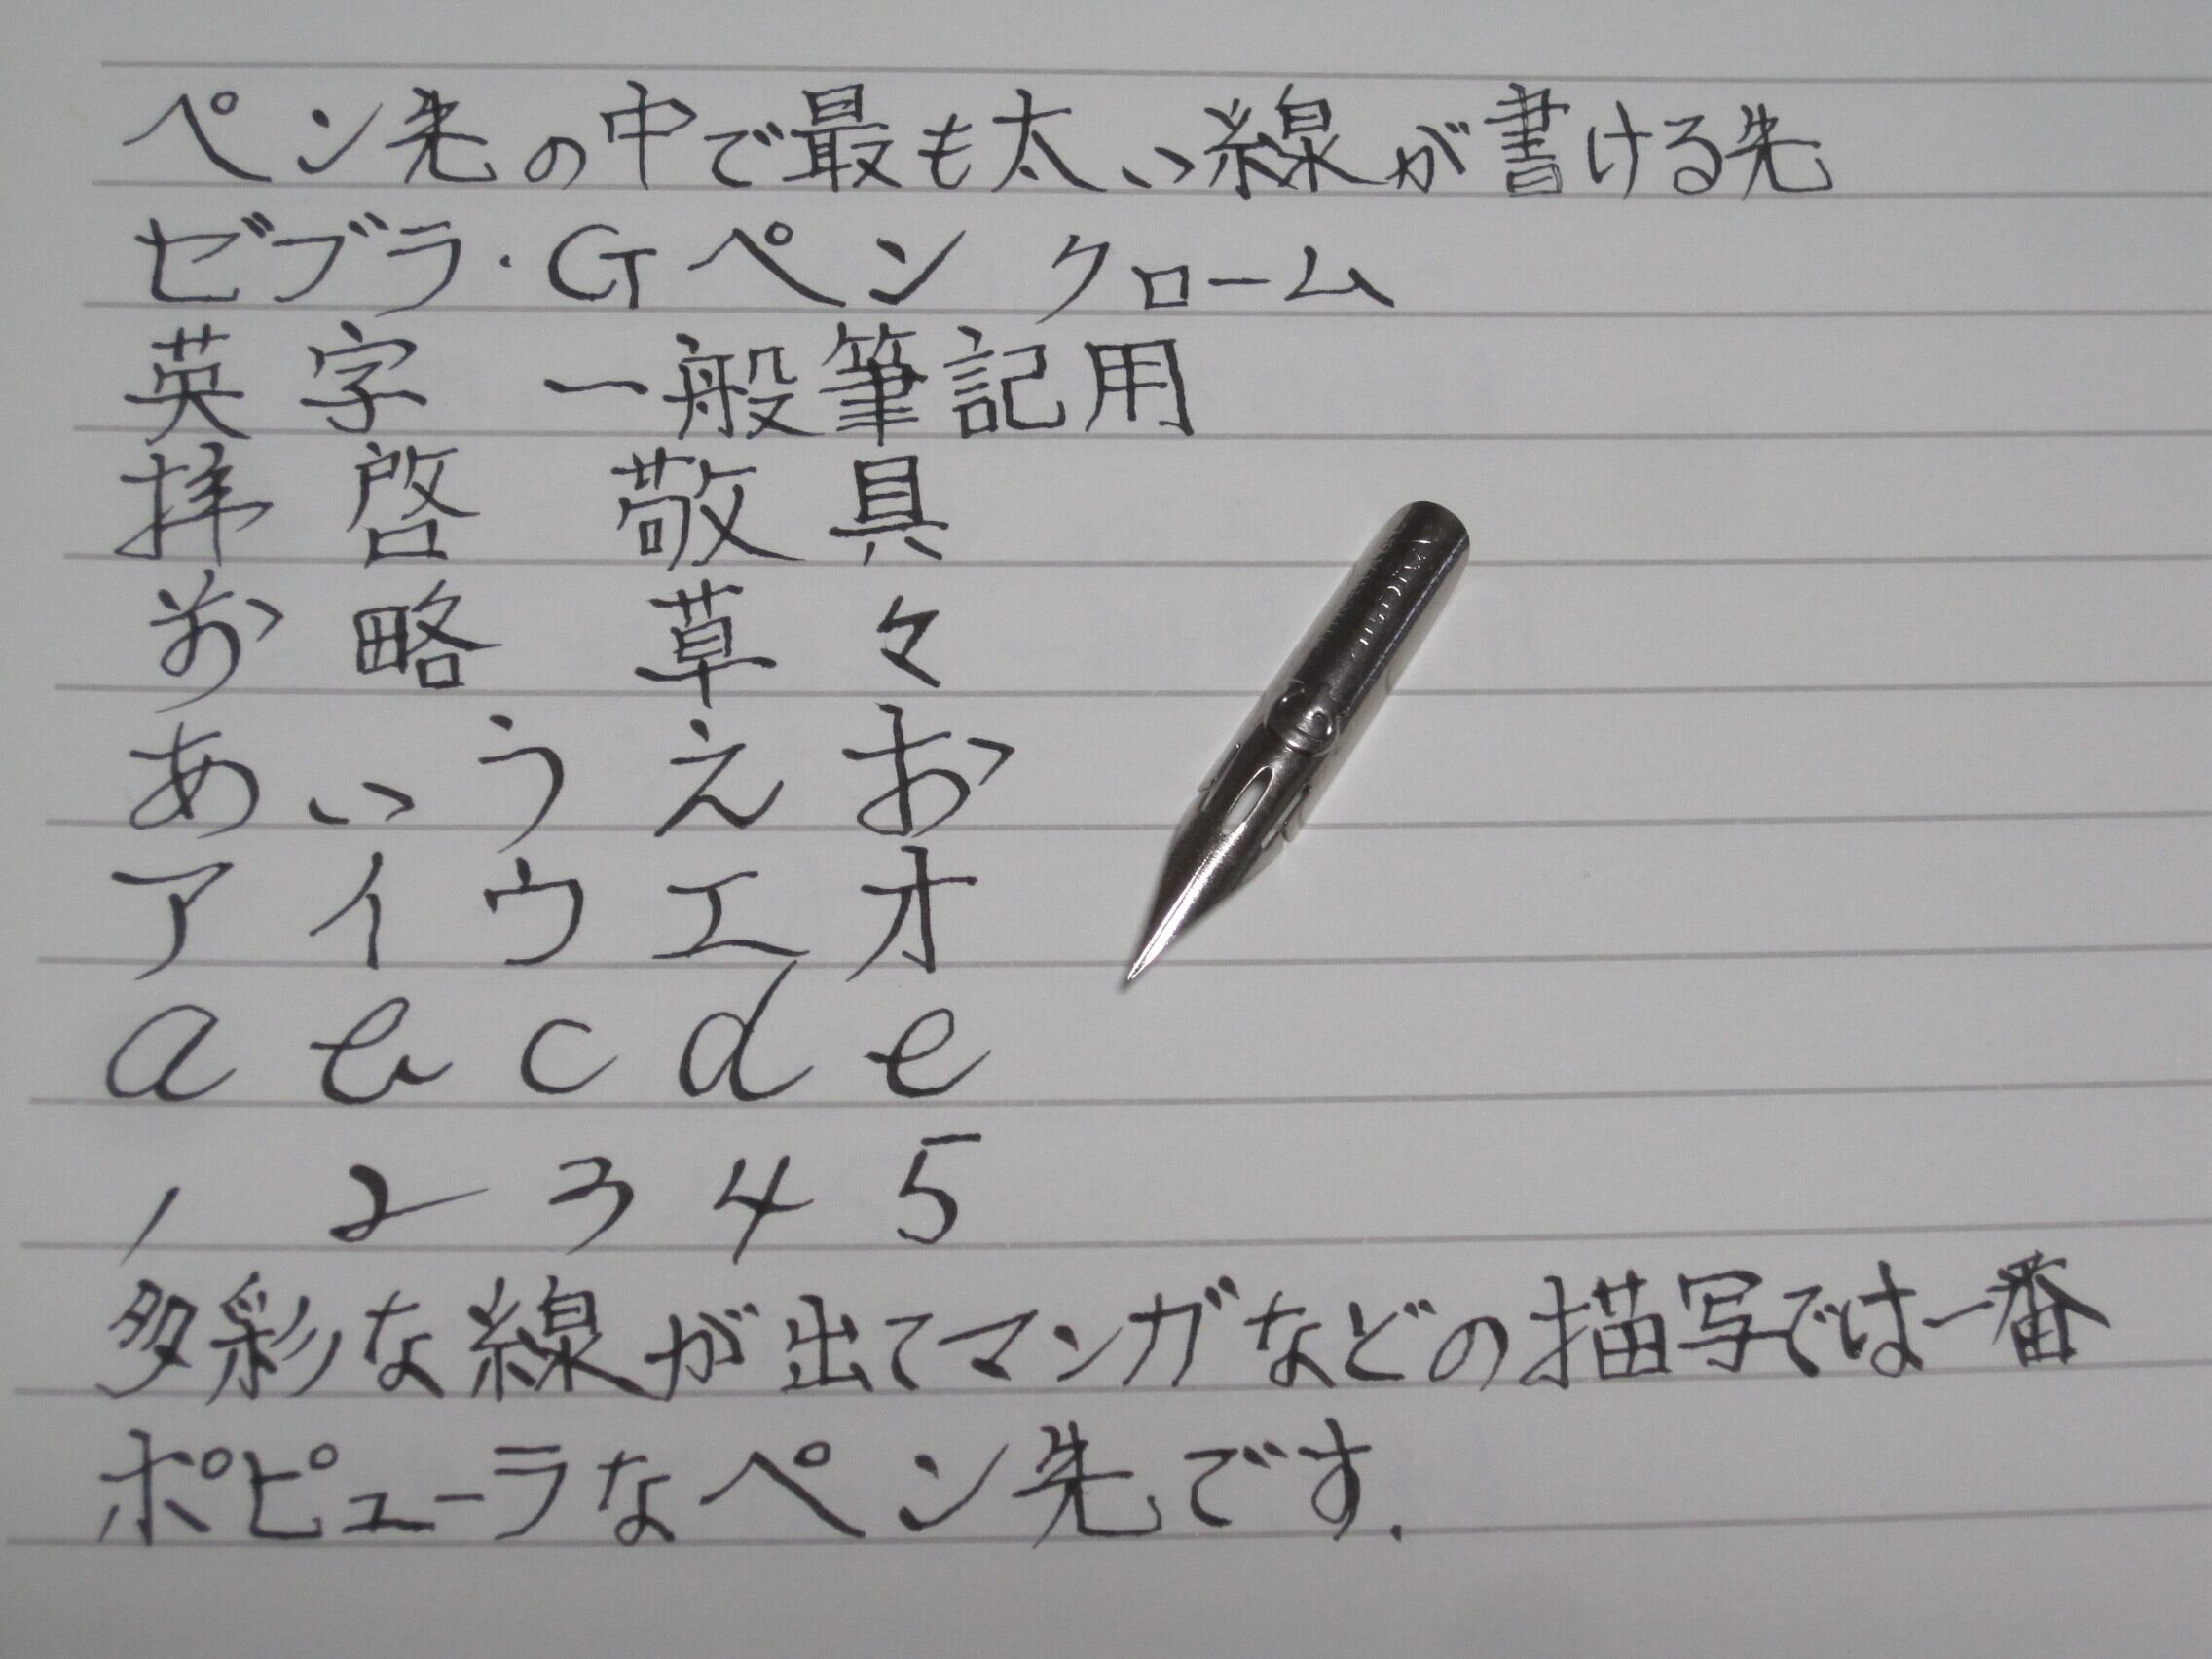 ペン先の中で最も太い線が書ける先
ゼブラ・Gペン クローム
英字 一般筆記用
拝啓 敬具
前略 草々
あいうえお
アイウエオ
a b c d e
1 2 3 4 5
多彩な線が出てマンガなどの描写では一番
ポピューラなペン先です.